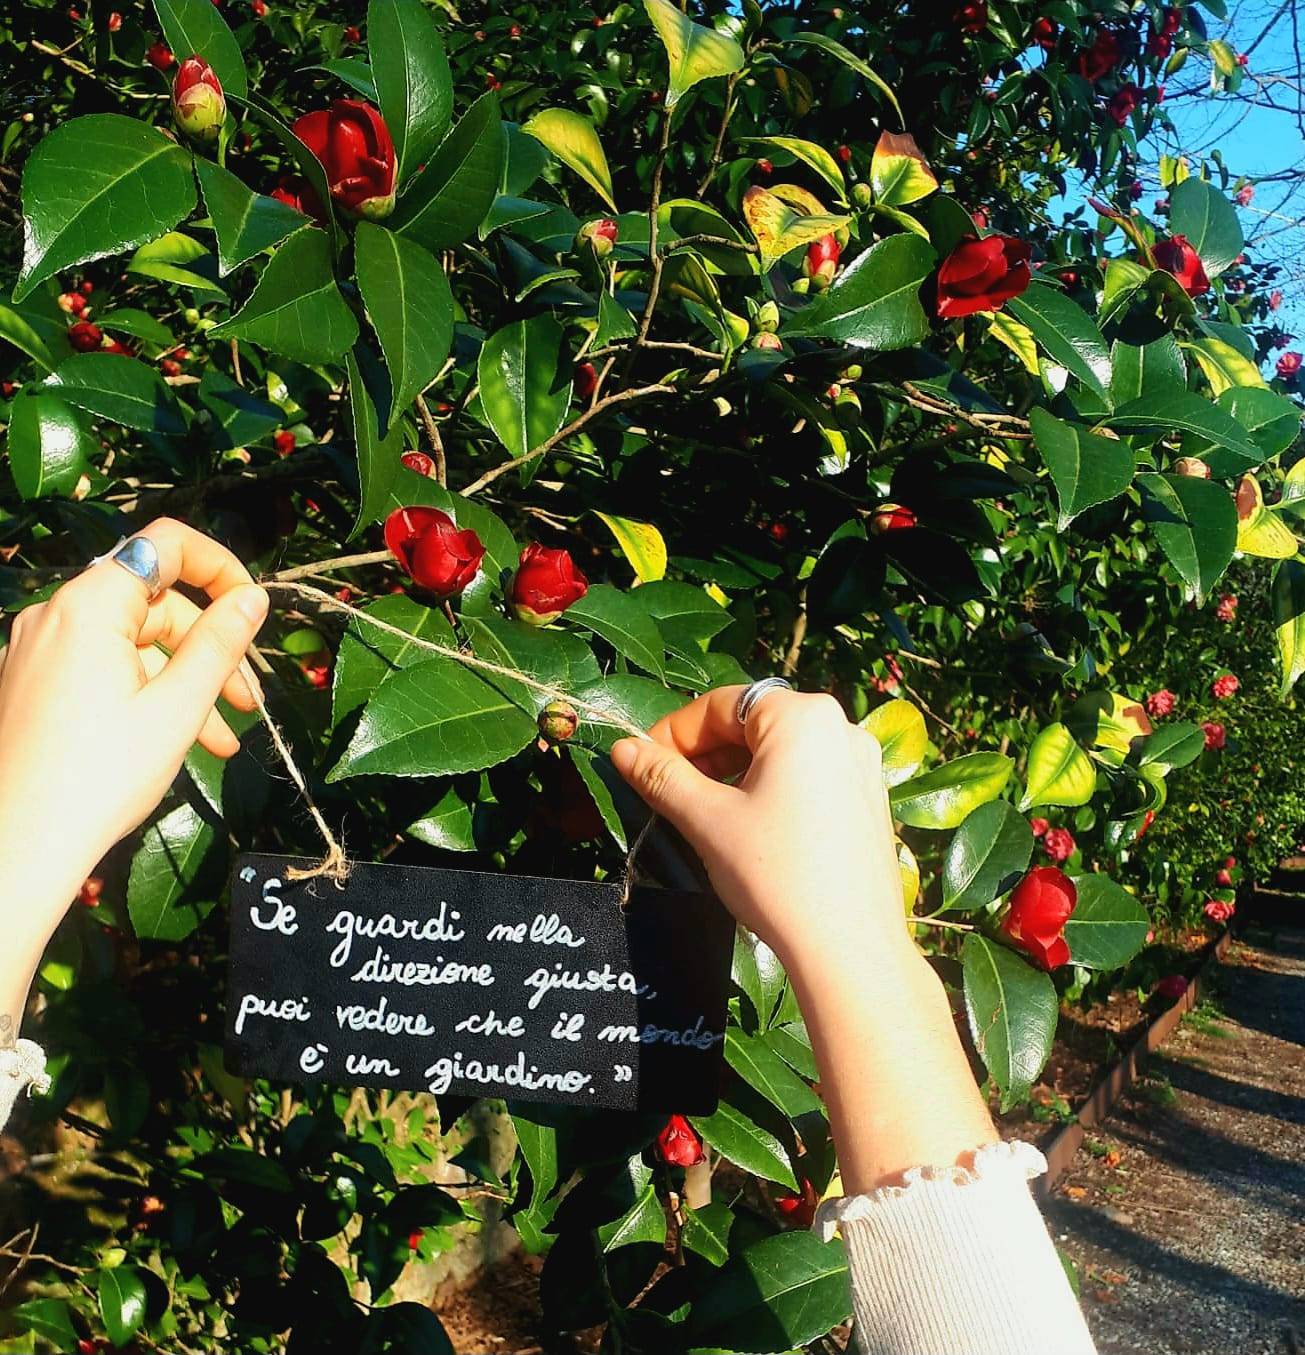 "Se guardi nella
direzione giusta,
puoi vedere che il mondo
è un giardino."